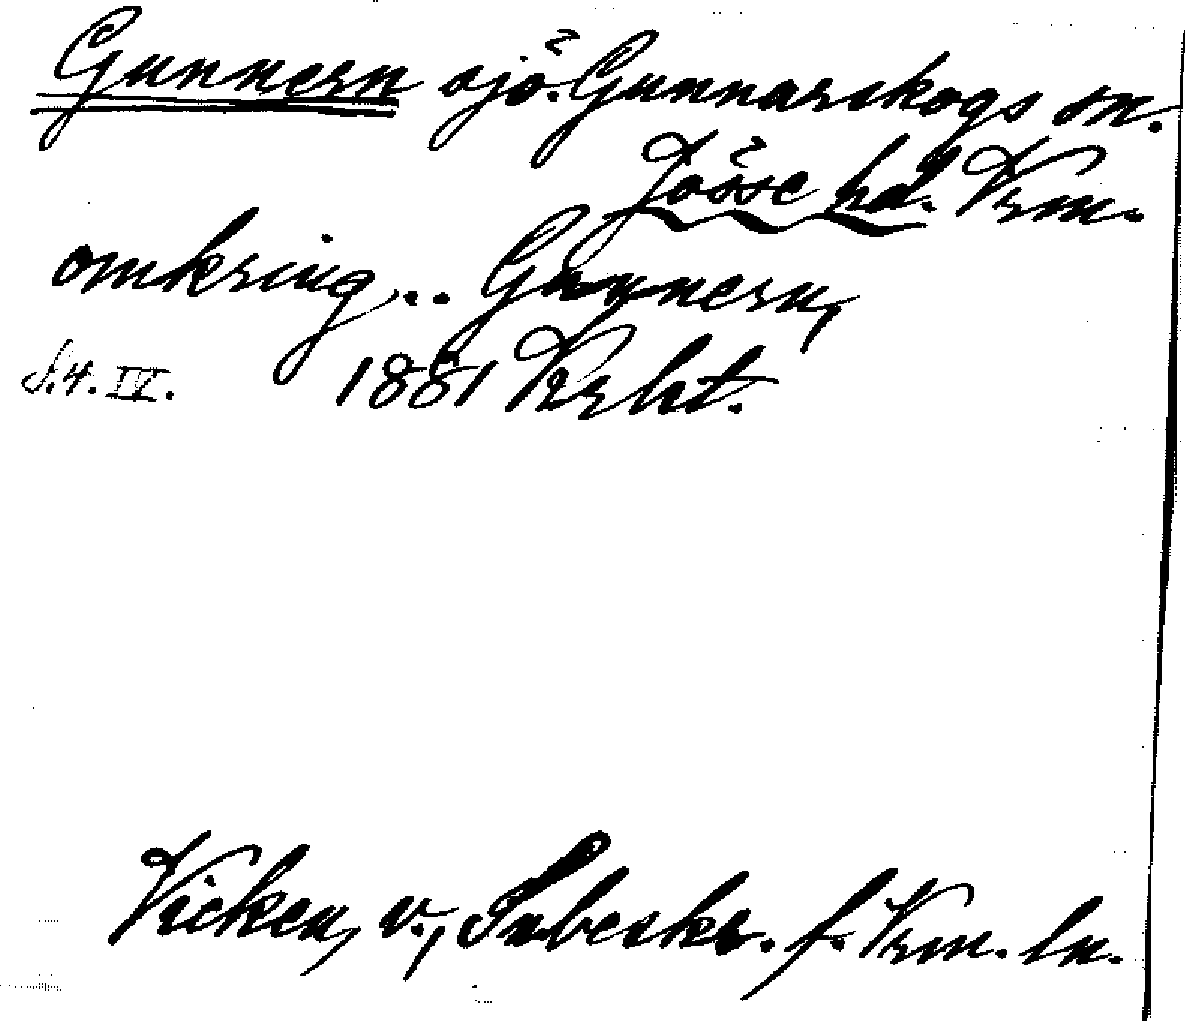 Gunnern sjö. Gunnarskogs sn.
Jösse hd. Vrm.
omkring .. Gunnern,
S.4. IV. 1881 Vrbt.
Vicken, v., Snbeskr. f. Vrm. ln.